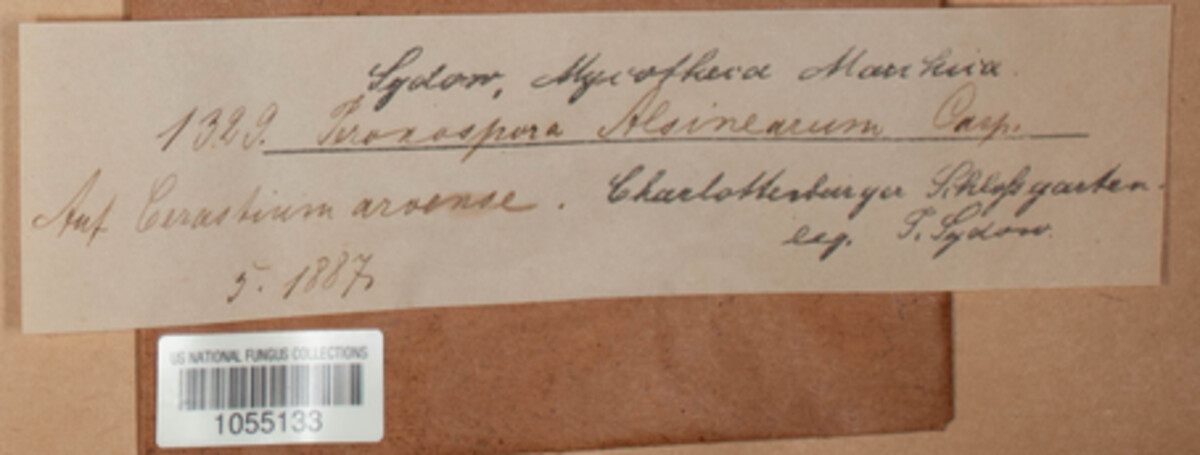 Sydow, Mycotheca Marchica.
1329. Peronospora Alsinearum Casp.
Auf Cerastium arvense. Charlottenburger Schloßgarten.
5. 1887. leg. P. Sydow.
US NATIONAL FUNGUS COLLECTIONS
1055133